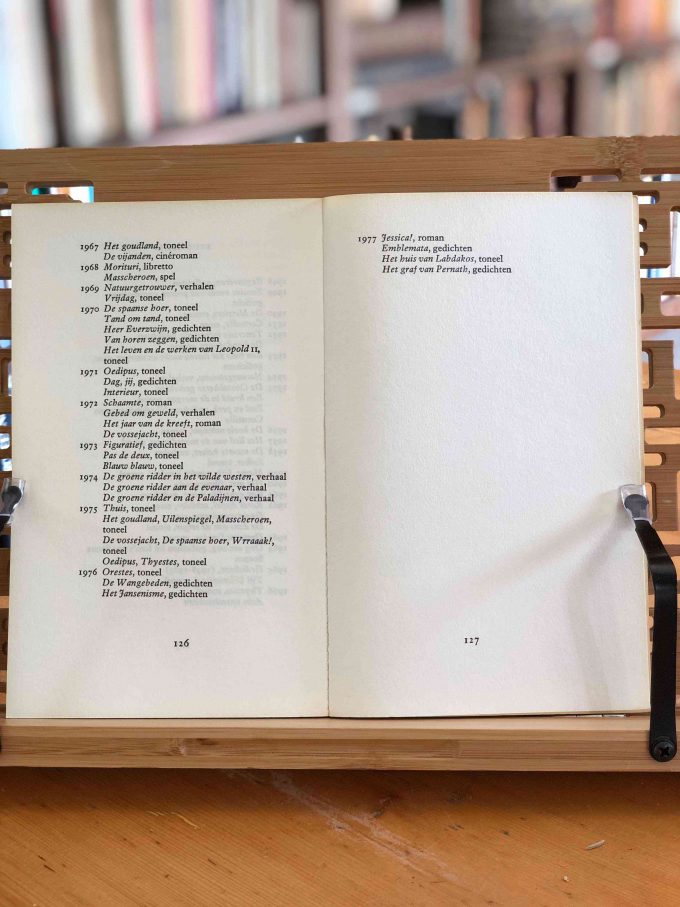 1967 Het goudland, toneel
De vijanden, cinéroman
1968 Morituri, libretto
Masscheroen, spel
1969 Natuurgetrouwer, verhalen
Vrijdag, toneel
1970 De spaanse hoer, toneel
Tand om tand, toneel
Heer Everzwijn, gedichten
Van horen zeggen, gedichten
Het leven en de werken van Leopold II,
toneel
1971 Oedipus, toneel
Dag, jij, gedichten
Interieur, toneel
1972 Schaamte, roman
Gebed om geweld, verhalen
Het jaar van de kreeft, roman
De vossejacht, toneel
1973 Figuratief, gedichten
Pas de deux, toneel
Blauw blauw, toneel
1974 De groene ridder in het wilde westen, verhaal
De groene ridder aan de evenaar, verhaal
De groene ridder en de Paladijnen, verhaal
1975 Thuis, toneel
Het goudland, Uilenspiegel, Masscheroen,
toneel
De vossejacht, De spaanse hoer, Wrraaak!,
toneel
Oedipus, Thyestes, toneel
1976 Orestes, toneel
De Wangebeden, gedichten
Het Jansenisme, gedichten
126
1977 Jessica!, roman
Emblemata, gedichten
Het huis van Labdakos, toneel
Het graf van Pernath, gedichten
127